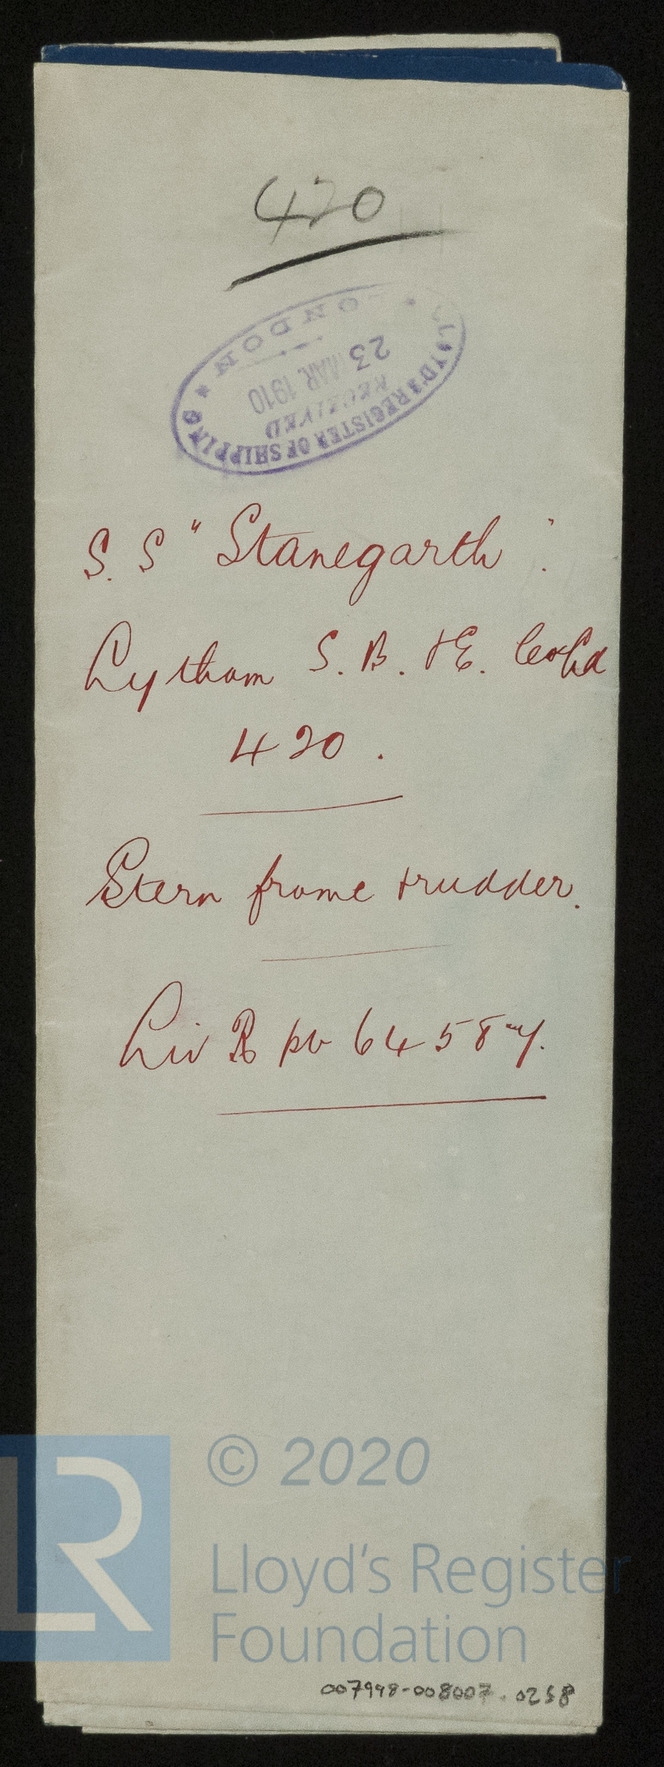 420
LLOYD'S REGISTER OF SHIPPING
RECEIVED
23 MAR 1910
* LONDON *
S. S "Stanegarth".
Lytham S. B. & E. Co Ld
420.
Stern frame & rudder.
Liv Rpt No 64587.
© 2020
LR
Lloyd's Register
Foundation
007998-008007-0258